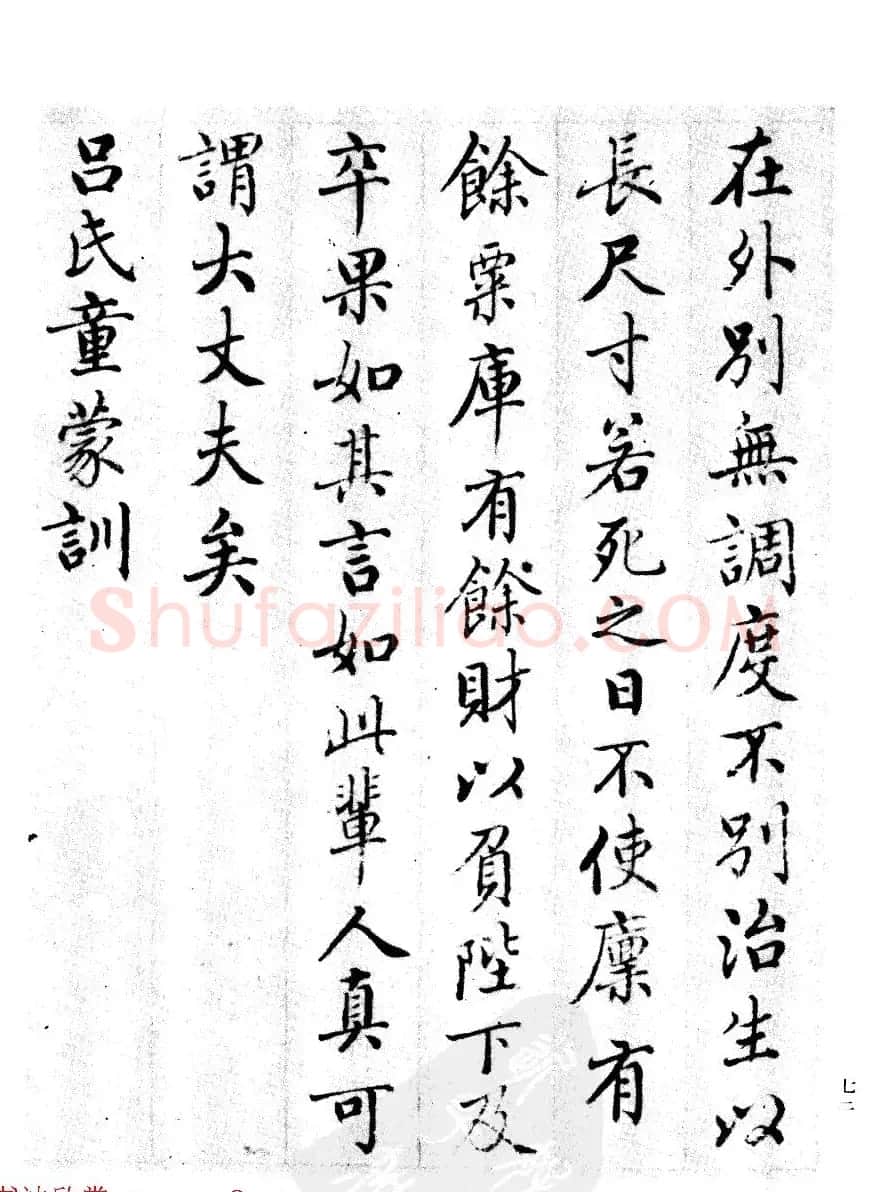 在外別無調度不別治生以
長尺寸若死之日不使廩有
餘粟庫有餘財以負陛下及
卒果如其言如此輩人真可
謂大丈夫矣
呂氏童蒙訓
七二
Shufaziliao.COM